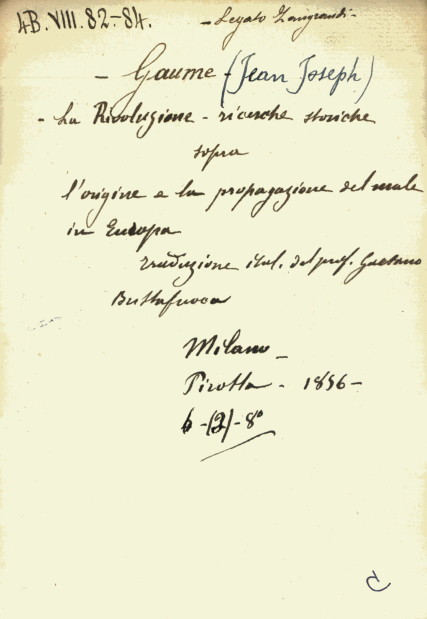 4B. VIII. 82-84.
- Legato Zanigrandi -
- Gaume - (Jean Joseph)
- La Rivoluzione - ricerche storiche
sopra
l'origine e la propagazione del male
in Europa
traduzione ital. del prof. Gaetano
Buttafuoco
Milano -
Pirotta - 1856 -
6 - (2) - 8°
C